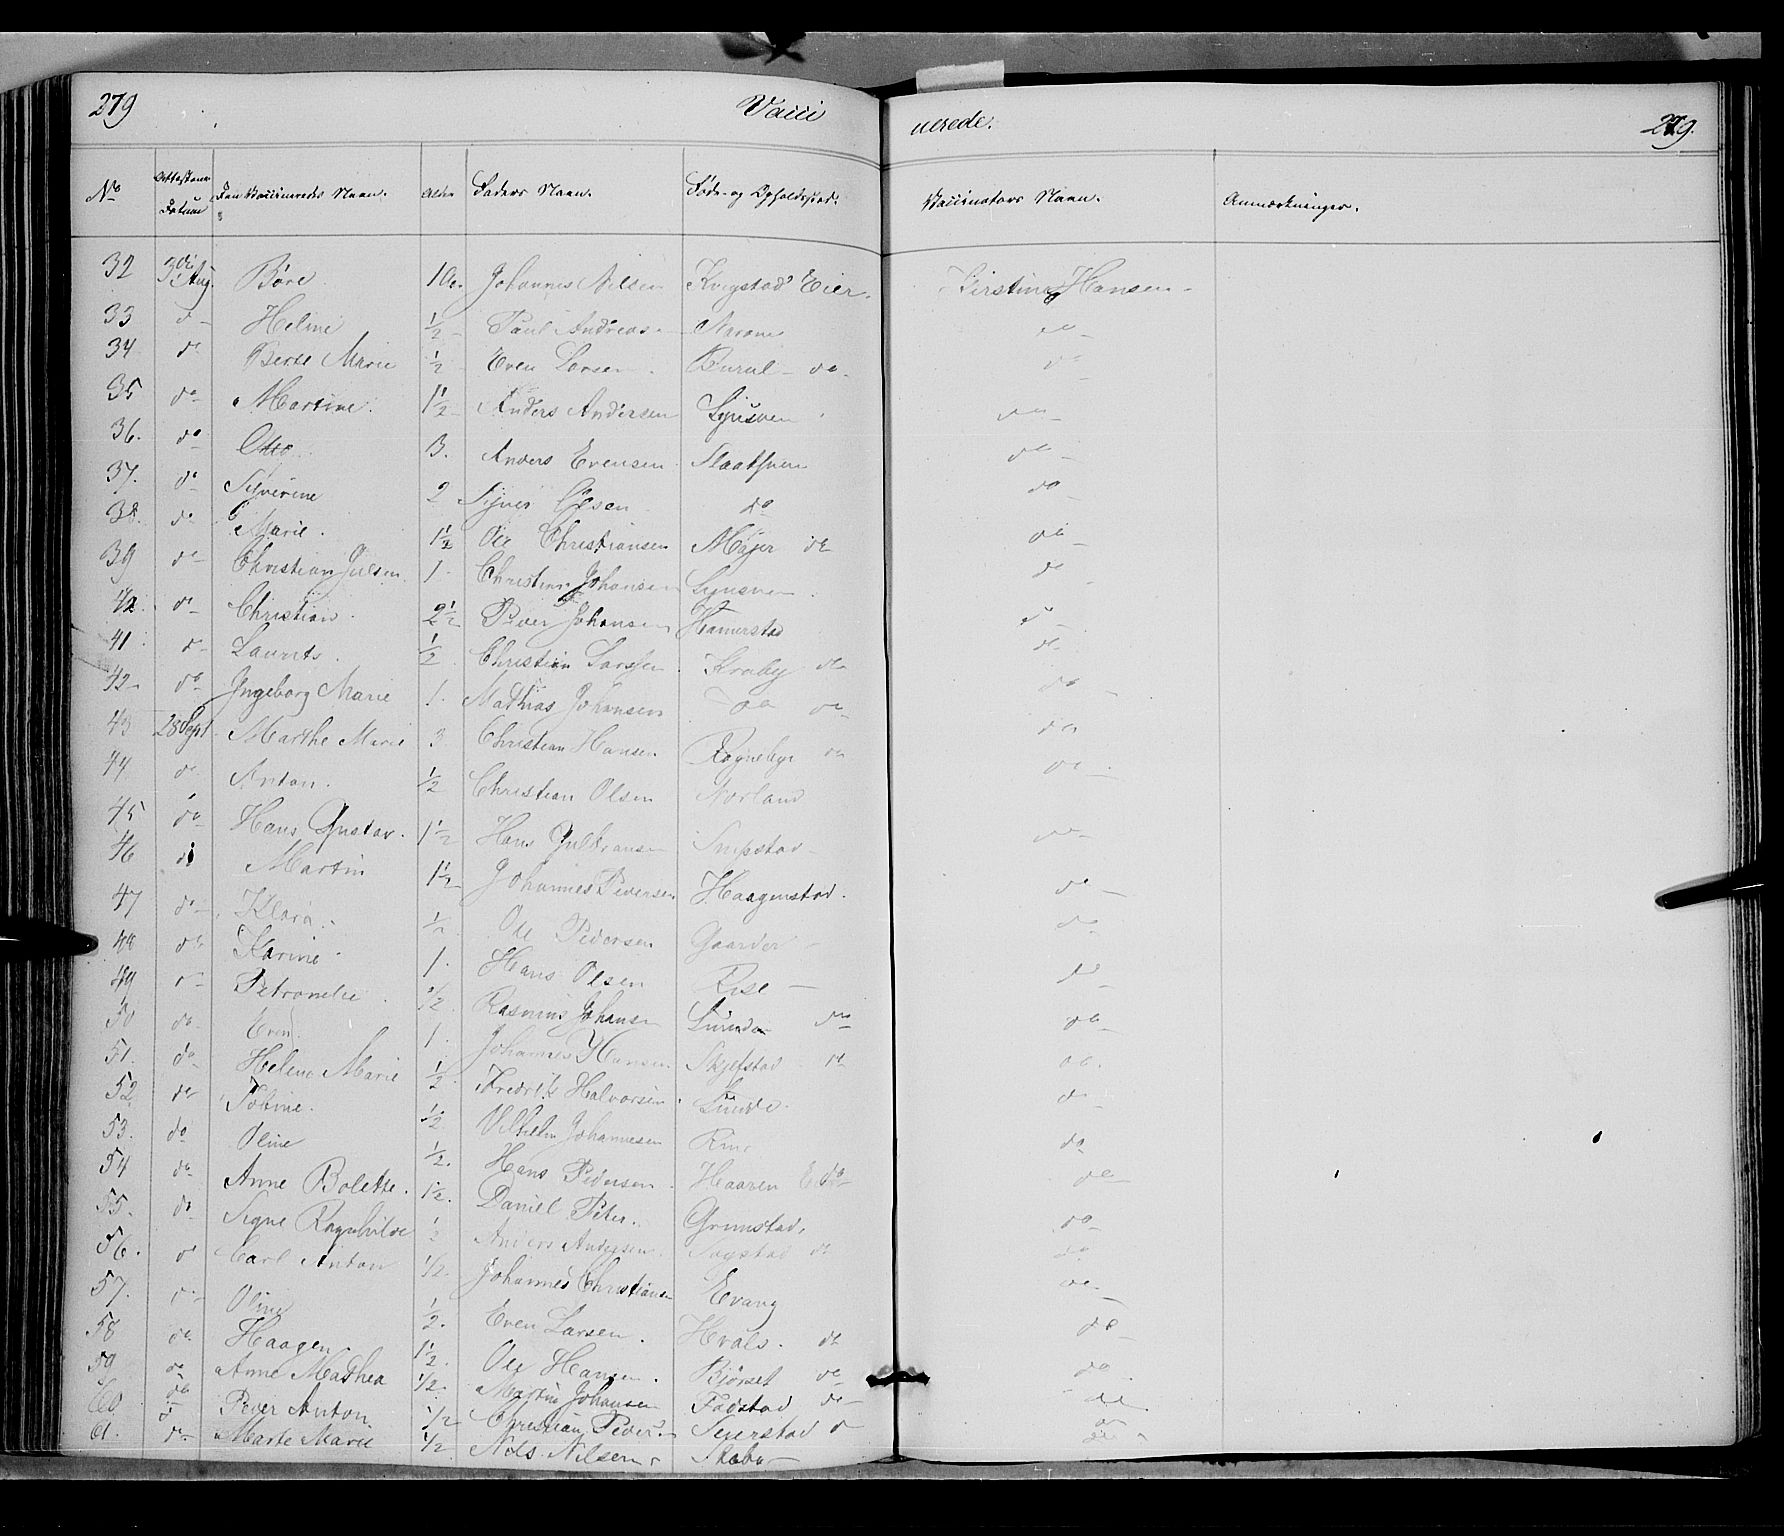 279 Vacci nerede. 279.
No Attestens Datum Den Vaccineredes Navn. Alder Faders Navn. Føde- og Opholdssted. Vaccinators Navn. Anmærkninger.
32 3die Aug. Johannes Nilsen Kvigstad Eier. Kirstine Hansen
33 Helme 1/2 Paul Andreas do
34 do Berte Marie 1/2 Even Larsen do do
35 do Martine. 1 1/2 Anders Andersen do
36. do Otto 3. Anders Evensen Slaatsveen do
37. do Syverine 2 Syver Olsen do do
38. do Marie. 1 1/2 Ole Christiansen do do
39 do Christian Julsen 1 Christian Johansen do
42 do Christian. 2 1/2 Peder Johansen Hamerstad do
41 do Laurits. 1/2 Christian Larssen Kraby do do
42 do Ingeborg Marie 1. Mathias Johansen do do do
43 28 Sept. Marthe Marie 3 Christian Hansen Rogneby do do
44 do Anton. 1/2 Christian Olsen Norland do
45 do Hans Gustav. 1 1/2 Hans Gulbransen do
46 do Martin 1 1/2 Johannes Pedersen Haagenstad. do
47 do Klara. 1/2 Ole Pedersen Gaarder do
48 do Karine 1. Hans Olsen Rise do
49 do Petronelie 1/2 Rasmus Johansen Lunde do do
50 do Even 1. Johannes Hansen Skjefstad do do
51. do Helene Marie 1/2 Fredrik Halvorsen Lunde. do
52 do Tobine. 1/2 Vilhelm Johannesen do
53. do Oline 1/2. Hans Pedersen Haaren E do do
54 do Anne Bolette. 1 1/2. Daniel Peter. Grimstad. do
55. do Signe Ragnhilde 1/2 Anders Andersen. do do
56. do Carl Anton 1/2 Johannes Christiansen Evang do
57. do Oline 1/2. Even Larsen. Hvals. do do
58 do Haagen. 1 1/2 Ole Hansen. Bjørset do do
59 do Anne Mathea 1/2. Martin Johansen Fodstad do do
60 do Peder Anton. 1/2 Christian Peder. Seierstad do do
61. do Marte Marie 1/2 Nils Nilsen do